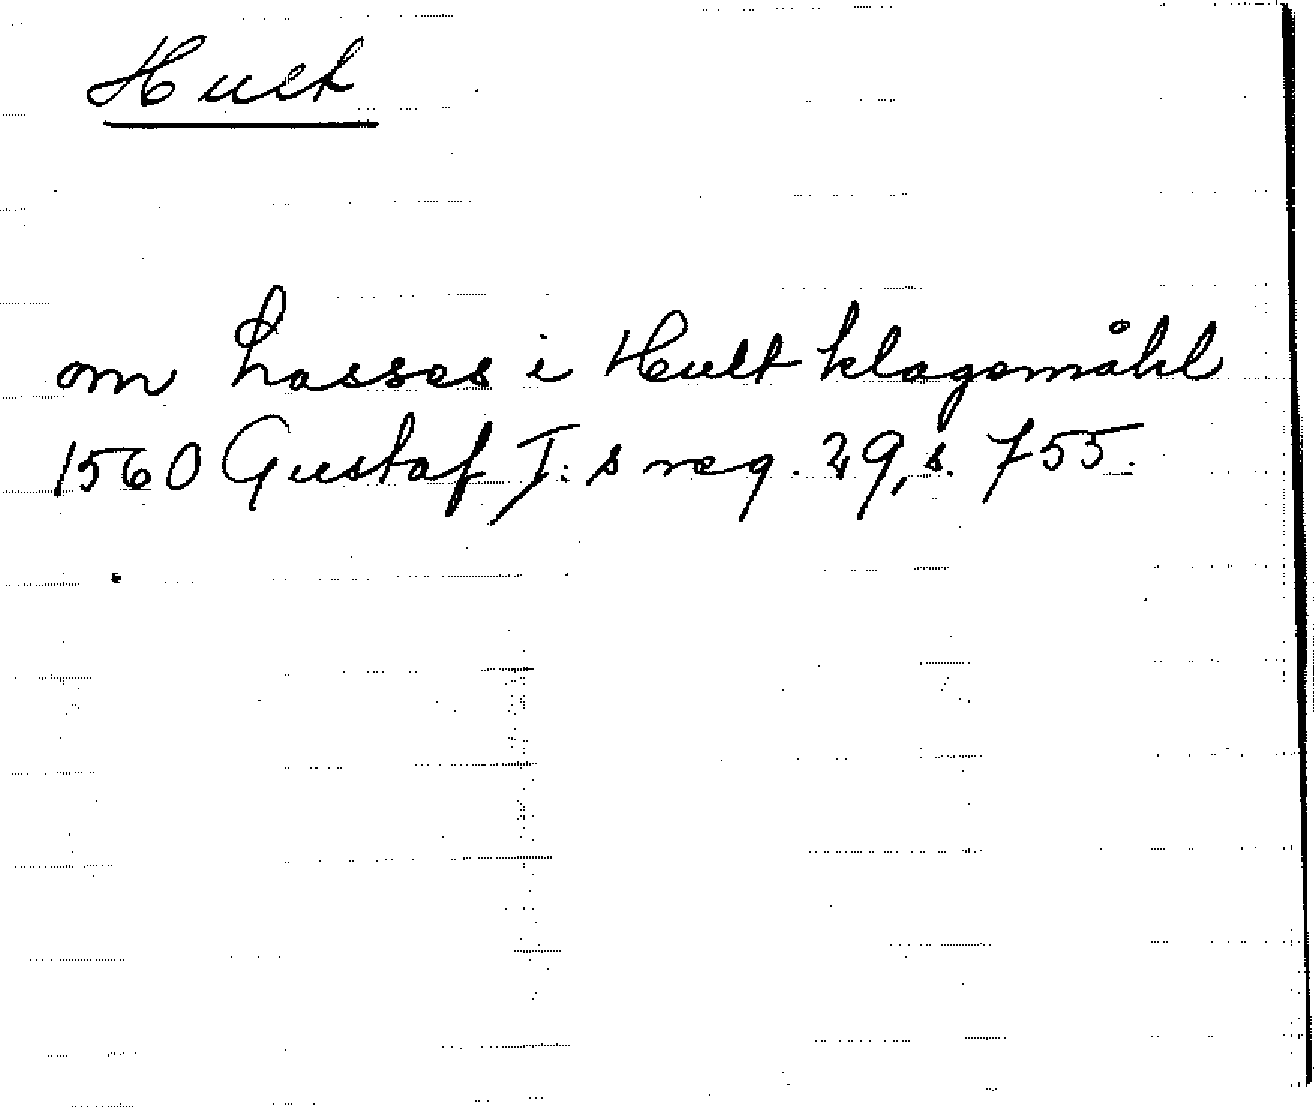 Hult
om Lasses i Hult klagomåhl
1560 Gustaf I:s reg. 29, s. 755.